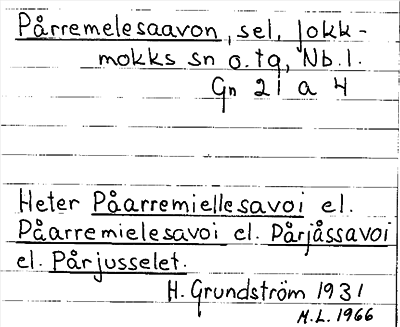 Pårremelesaavon, sel, Jokk-
mokks sn o. tg, Nb. l.
Gn 21 a 4
Heter Påarremiellesavoi el.
Påarremielesavoi el. Pårjåssavoi
el. Pårjusselet.
H. Grundström 1931
M.L. 1966